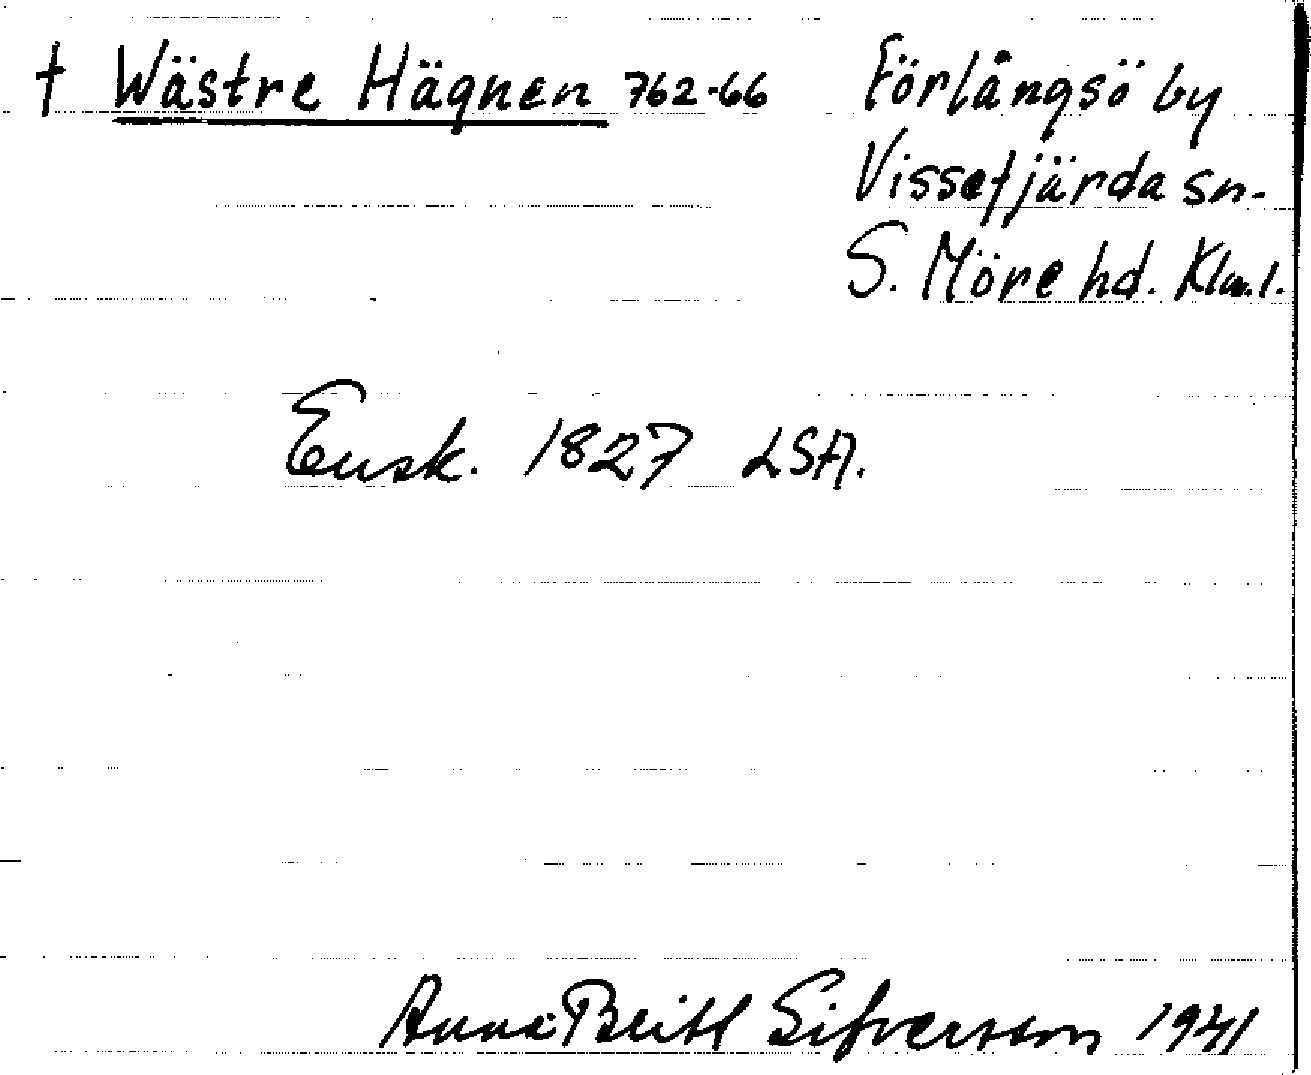 † Wästre Hägnen 762-66 Förlångsö by
Vissefjärda sn.
S. Möre hd. Klm.l.
Ensk. 1827 LSA.
Anna-Britt Sifversson 1941